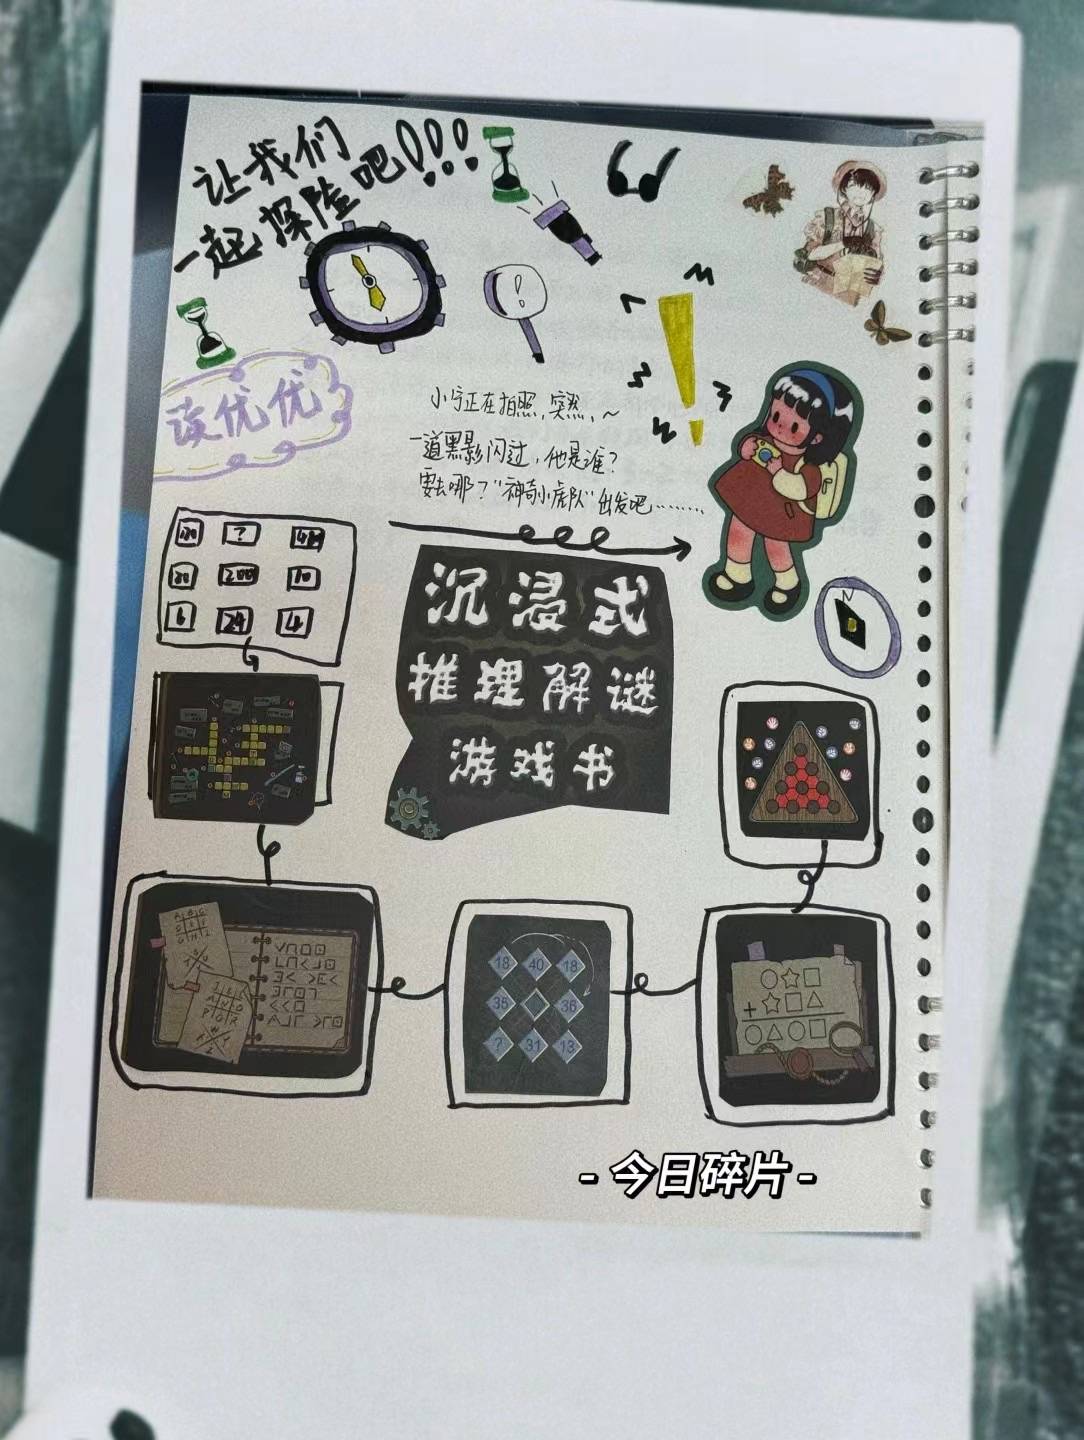 让我们
一起探险吧!!!
!
读优优
小宁正在拍照,突然,~
一道黑影闪过,他是谁?
要去哪?"神奇小虎队"出发吧……
N
? 48
200 10
6 24 4
沉浸式
推理解谜
游戏书
18 40 18
35 36
? 31 13
+
- 今日碎片 -